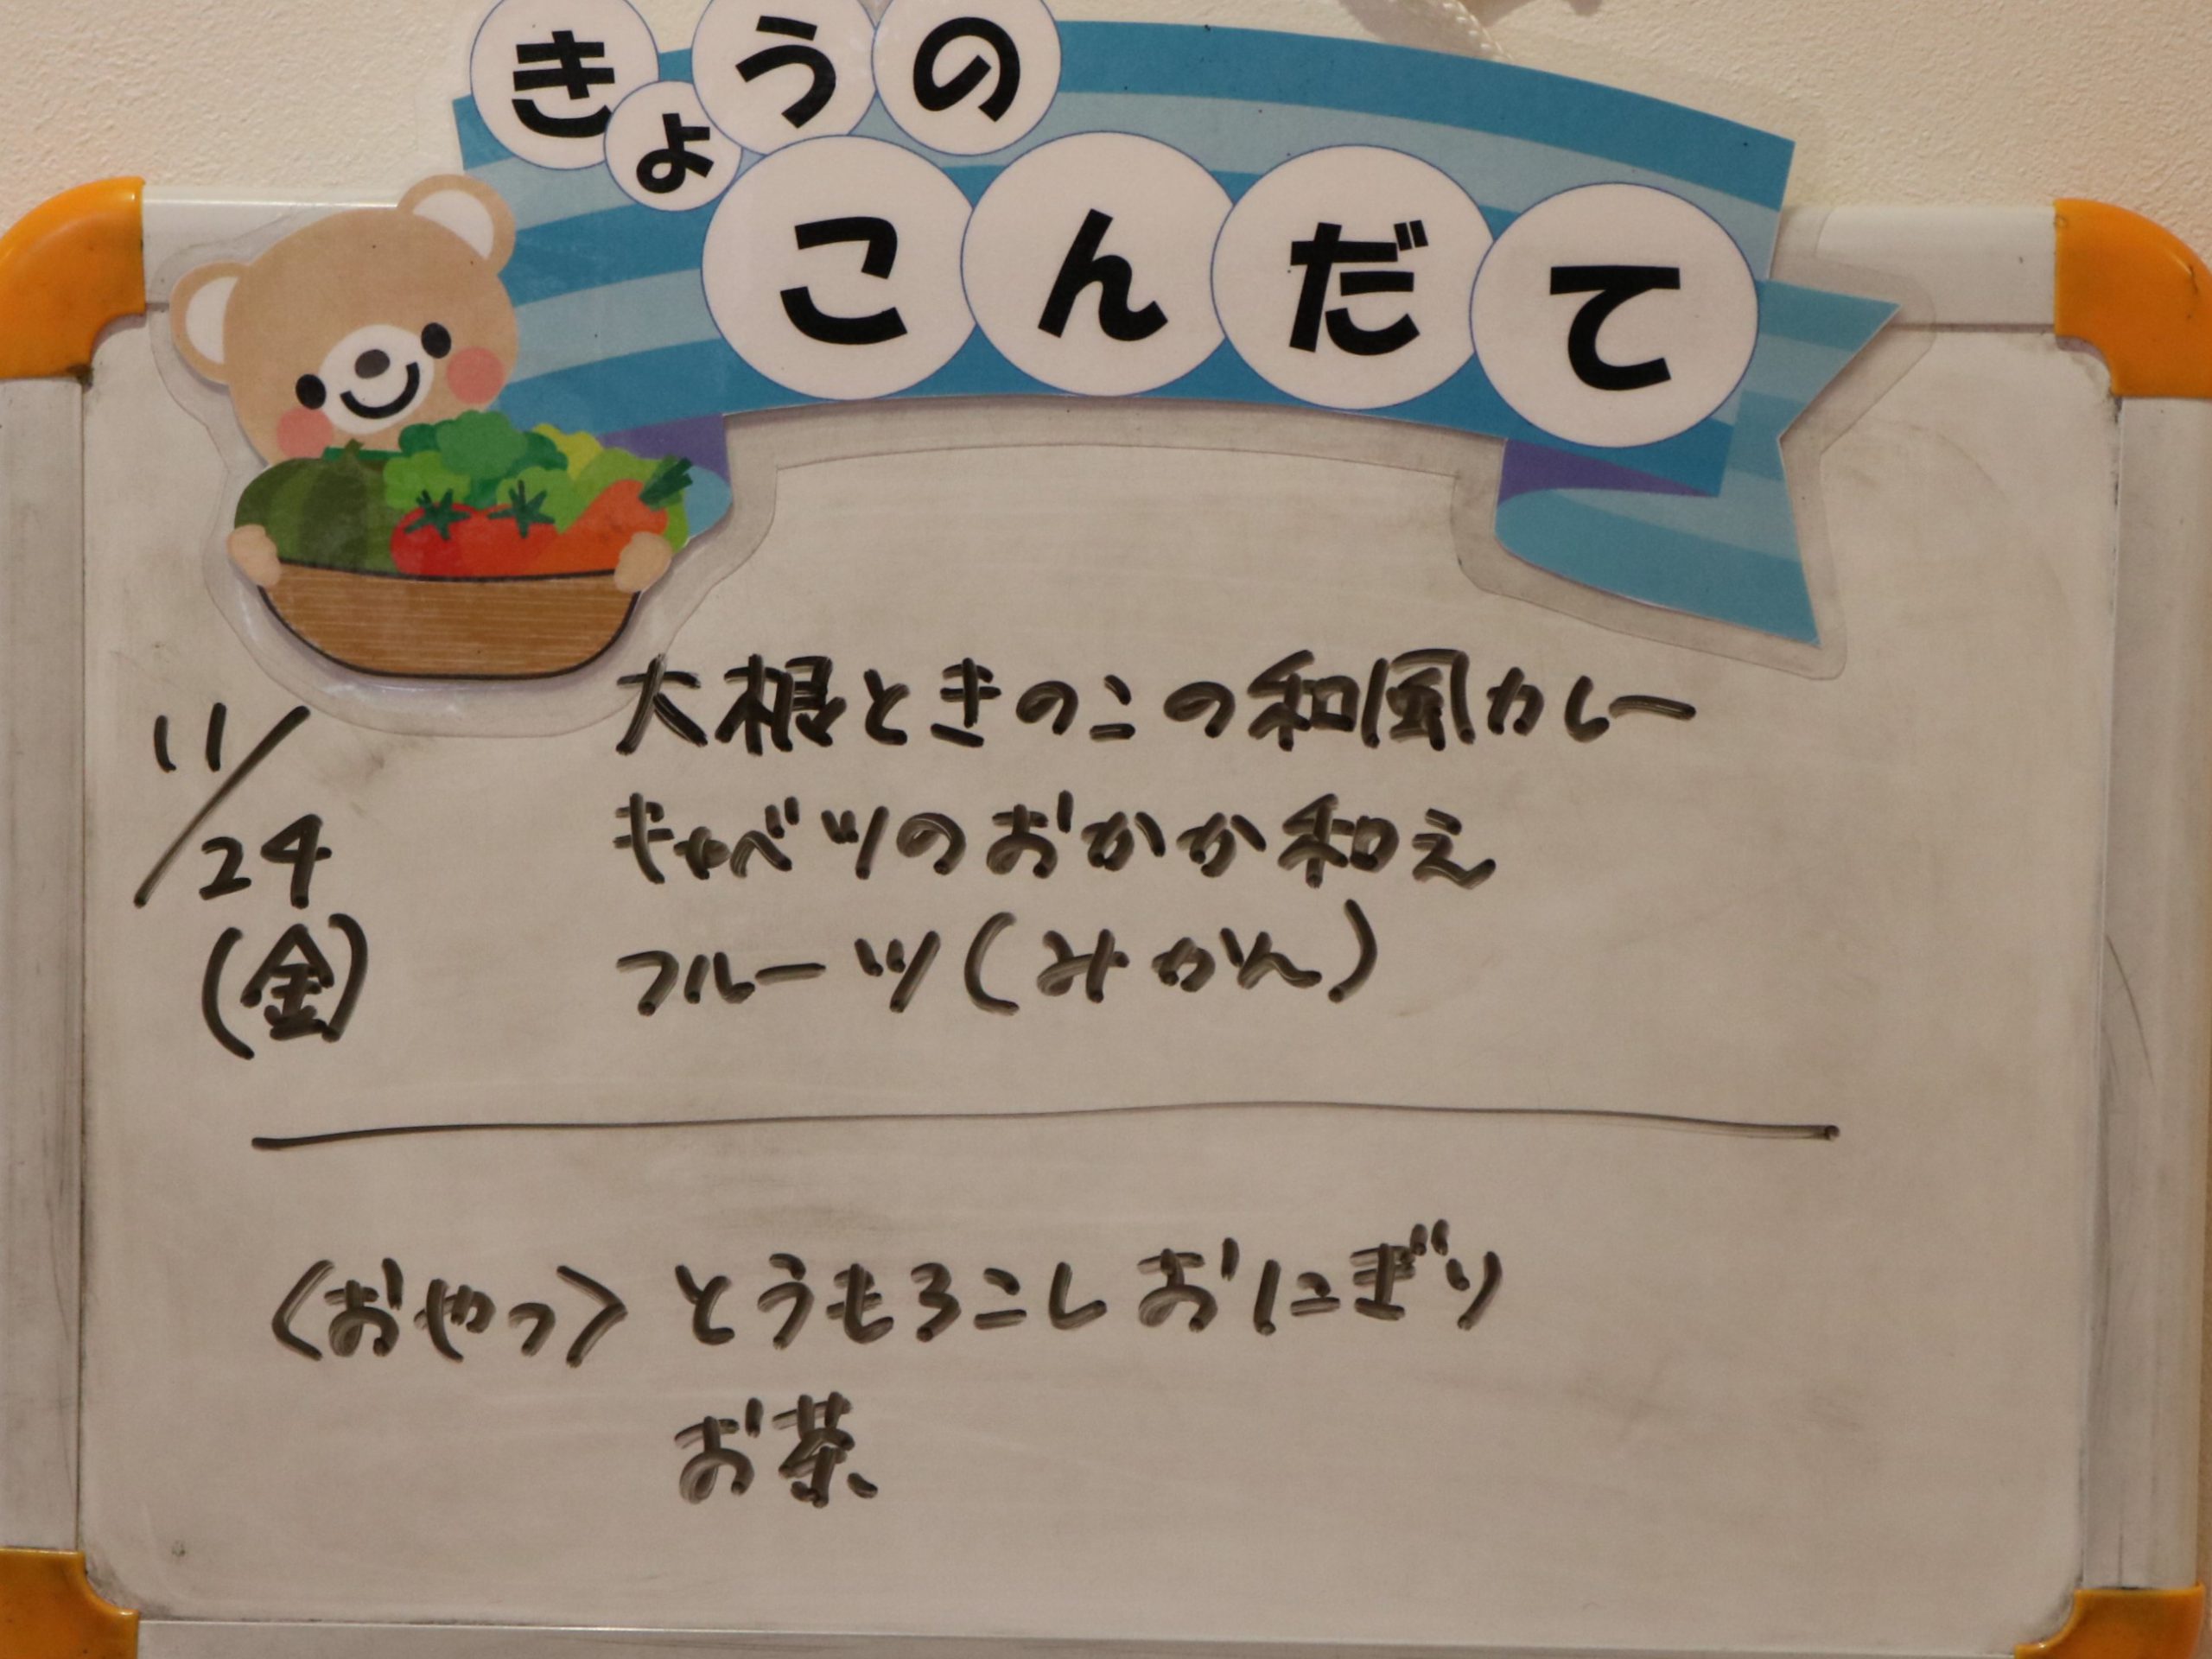 きょうの
こんだて
11/24
(金)
大根ときのこの和風カレー
キャベツのおかか和え
フルーツ(みかん)
〈おやつ〉とうもろこしおにぎり
お茶